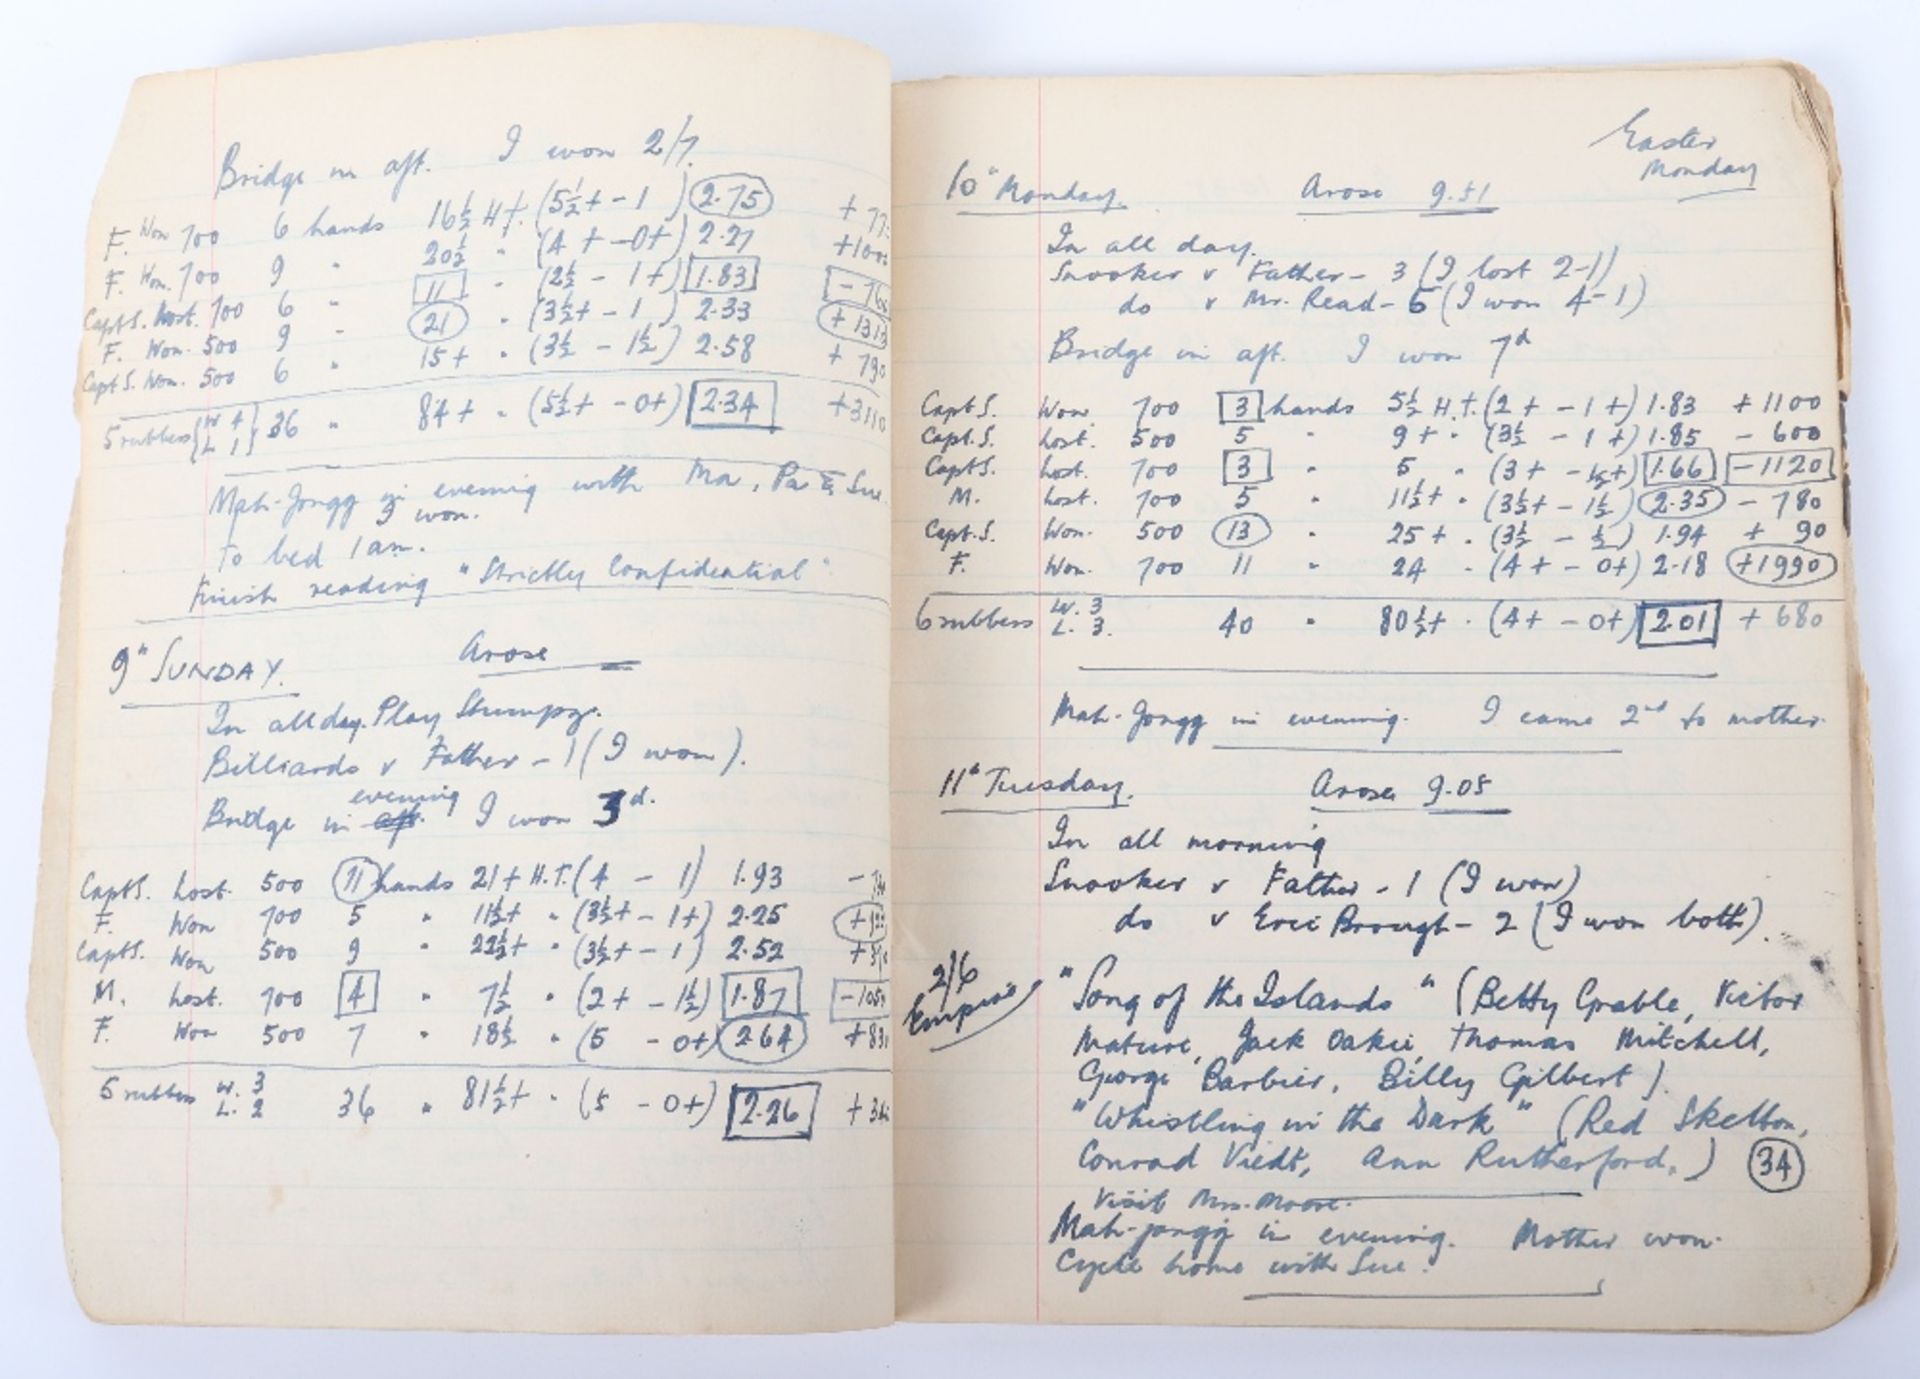 Bridge in aft. I won 2/7.
F. Won 700 6 hands 16½ H.T. (5½+ - 1 ) 2.75
F. Won. 700 9 " 20½ " (4 + - 0+) 2.27
Capt S. Lost. 700 6 " 11 " (2½ - 1+) 1.83
F. Won. 500 9 " 21 " (3½+ - 1 ) 2.33
Capt S. Won. 500 6 " 15+ " (3½ - 1½) 2.58 + 790
5 rubbers {W 4 L 1} 36 " 84+ " (5½+ - 0+) 2.34 +3110
Mah-Jongg in evening with Ma, Pa & Sue.
I won.
To bed 1 am.
Finish reading "Strictly Confidential".
9th SUNDAY. Arose —
In all day. Play Stumpz.
Billiards v Father - 1 (I won).
Bridge in aft. evening I won 3d.
Capt S. Lost. 500 11 hands 21+ H.T. (4 - 1) 1.93
F. Won 700 5 " 11½+ " (3½+ - 1+) 2.25
Capt S. Won 500 9 " 22½+ " (3½+ - 1) 2.52
M. Lost. 700 4 " 7½ " (2+ - 1½) 1.87
F. Won 500 7 " 18½ " (5 - 0+) 2.64
5 rubbers W. 3 L. 2 36 " 81½+ " (5 - 0+) 2.26
Easter
Monday
10th Monday. Arose 9.51
In all day.
Snooker v Father - 3 (I lost 2-1)
do v Mr. Read - 5 (I won 4-1)
Bridge in aft. I won 7d
Capt S. Won 700 3 hands 5½ H.T. (2+ - 1+) 1.83 + 1100
Capt. S. Lost. 500 5 " 9+ " (3½ - 1+) 1.85 - 600
Capt S. Lost. 700 3 " 5 " (3+ - ½+) 1.66 - 1120
M. Lost. 700 5 " 11½+ " (3½+ - 1½) 2.35 - 780
Capt. S. Won. 500 13 " 25+ " (3½ - ½) 1.94 + 90
F. Won. 700 11 " 24 " (4+ - 0+) 2.18 +1990
6 rubbers W. 3 L. 3. 40 " 80½+ " (4+ - 0+) 2.01 + 680
Mah-Jongg in evening. I came 2nd to mother.
11th Tuesday. Arose 9.05
In all morning
Snooker v Father - 1 (I won)
do v Eric Brough - 2 (I won both).
2/6
Empire
"Song of the Islands" (Betty Grable, Victor
Mature, Jack Oakie, Thomas Mitchell,
George Barbier, Billy Gilbert)
"Whistling in the Dark" (Red Skelton,
Conrad Viedt, Ann Rutherford,) 34
Visit Mrs. Moore.
Mah-jongg in evening. Mother won.
Cycle home with Sue.